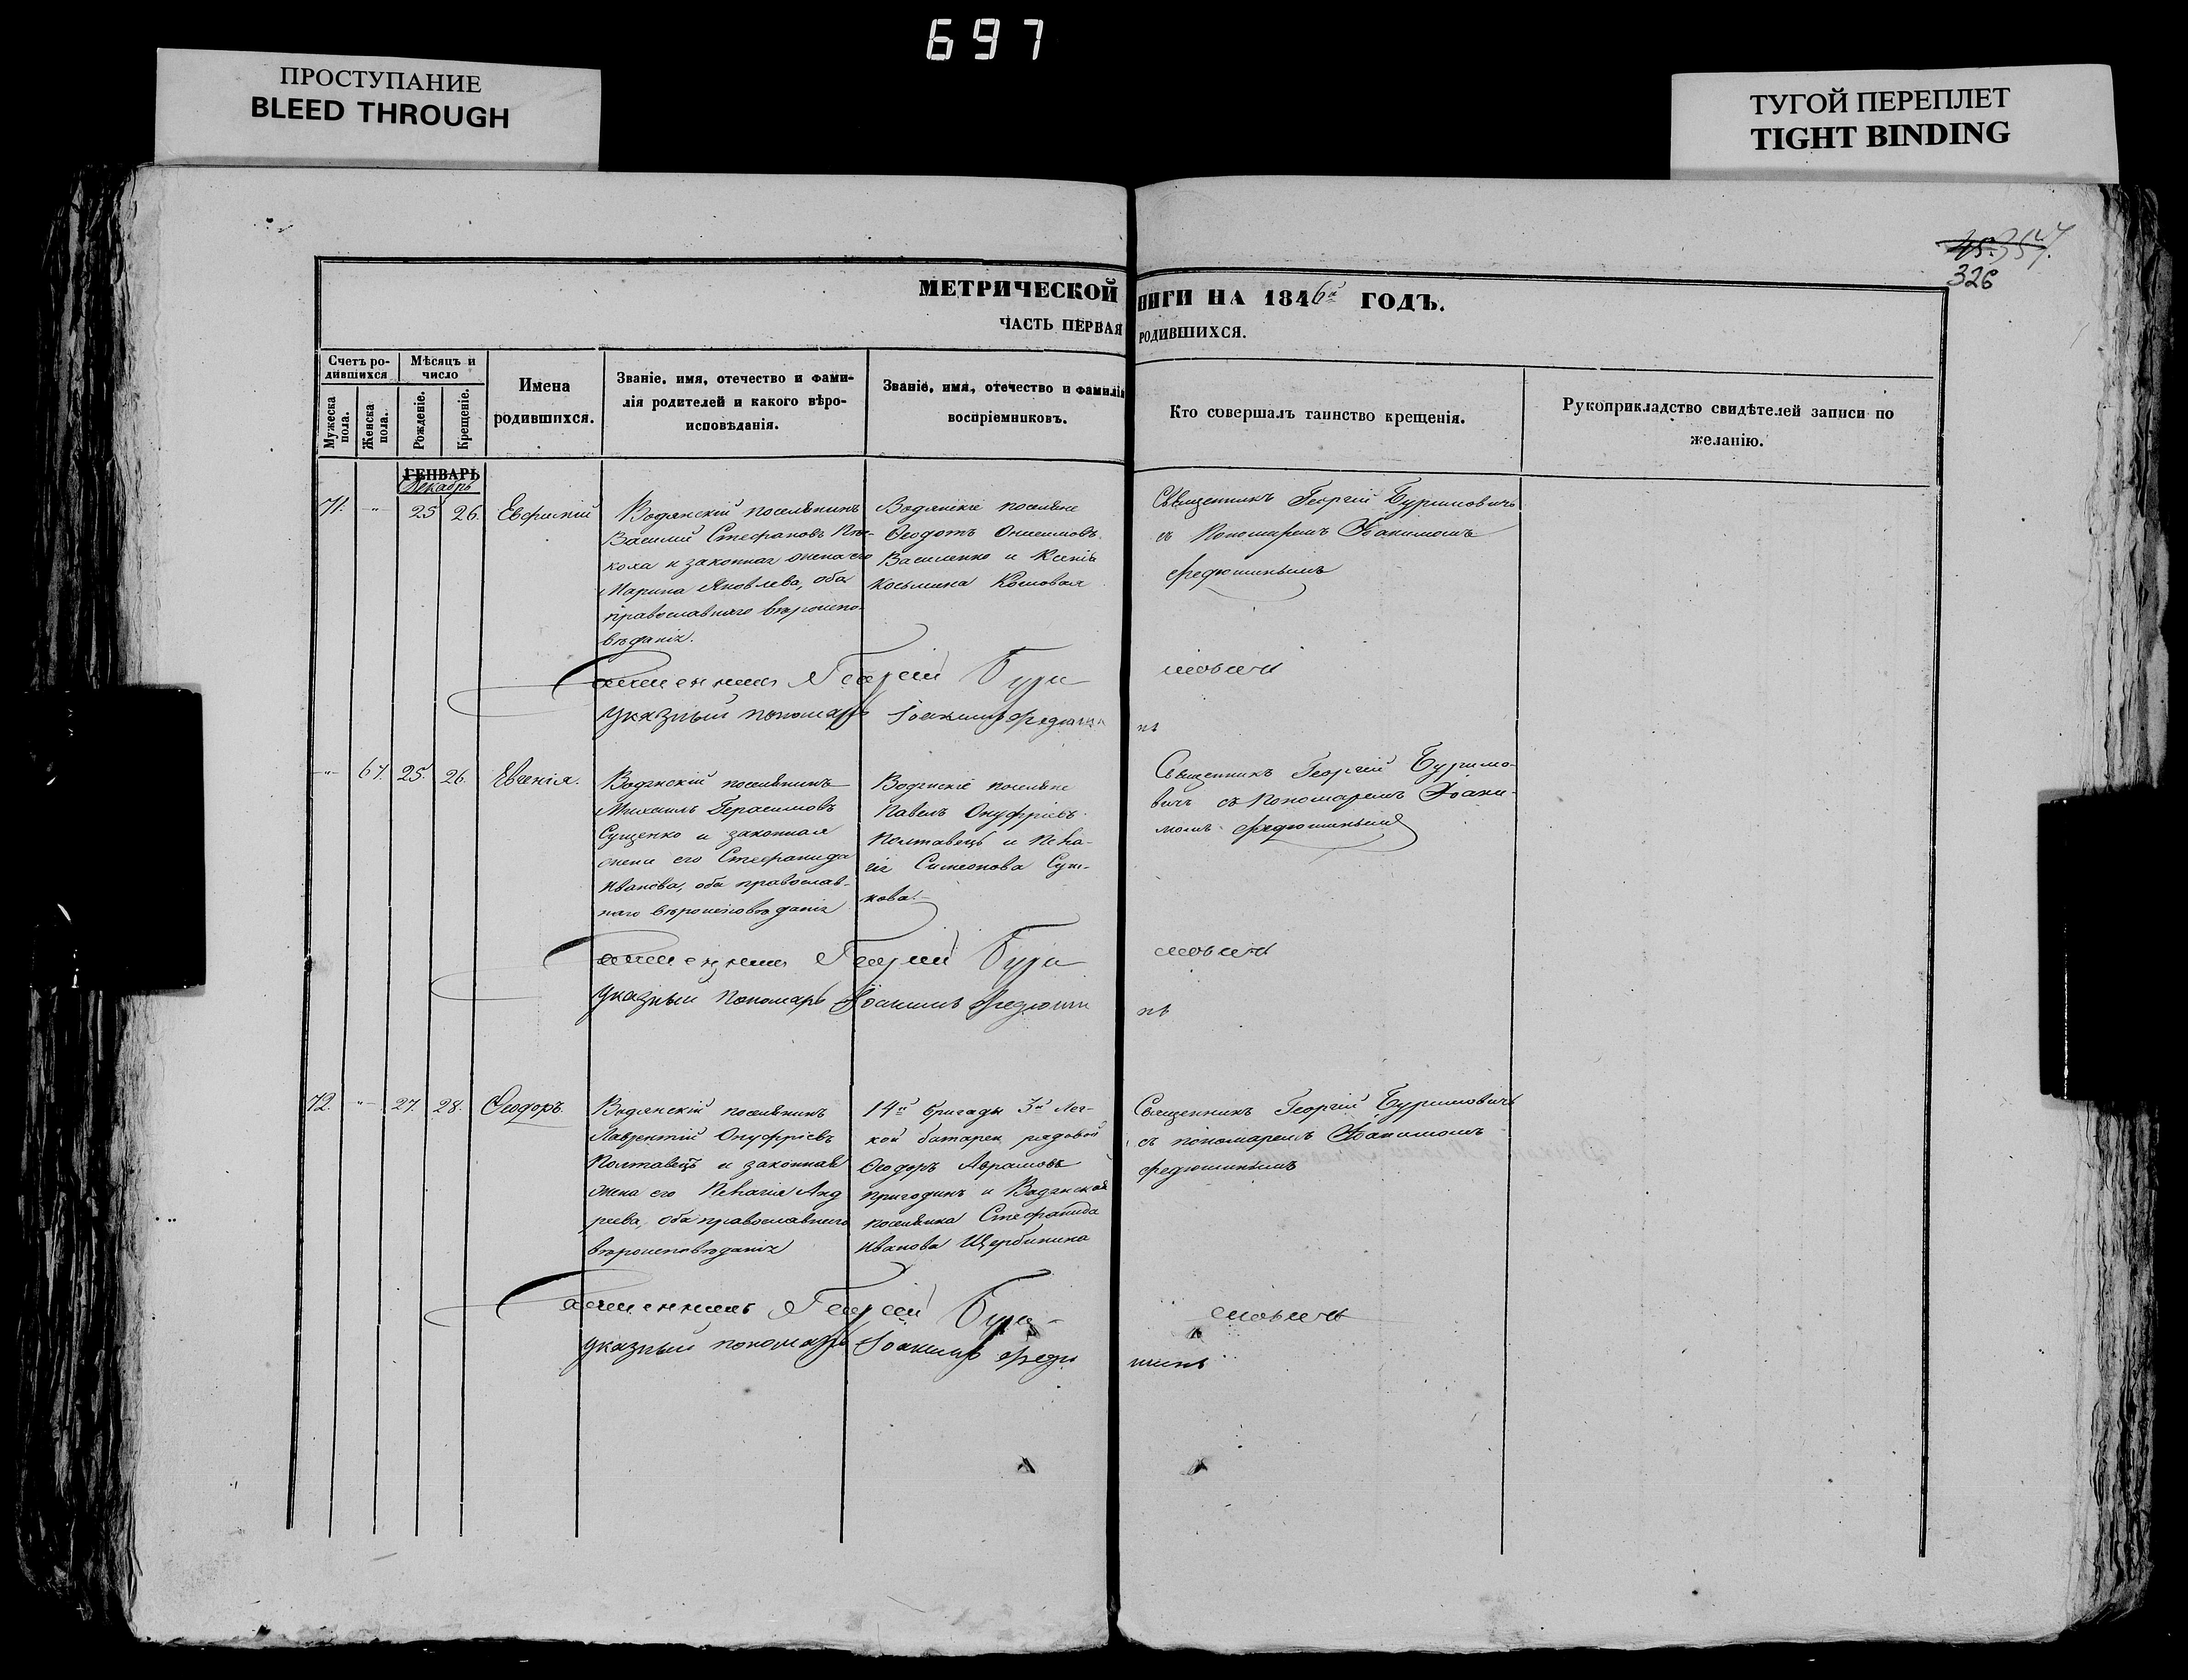 697
ПРОСТУПАНИЕ
BLEED THROUGH
ТУГОЙ ПЕРЕПЛЕТ
TIGHT BINDING
326
МЕТРИЧЕСКОЙ НИГИ НА 1846й ГОДЪ.
ЧАСТЬ ПЕРВАЯ РОДИВШИХСЯ.
Счетъ ро-
дившихся
Мужеска пола.
Женска пола.
Мѣсяцъ и
число
Рожденіе.
Крещеніе.
Имена
родившихся.
Званіе, имя, отечество и фами-
лія родителей и какого вѣро-
исповѣданія.
Званіе, имя, отечество и фамилія
воспріемниковъ.
Кто совершалъ таинство крещенія.
Рукоприкладство свидѣтелей записи по
желанію.
ГЕНВАРЬ
Декабрь
71. -"- 25 26. Евфимій
Водянскій поселянинъ
Василій Стефановъ
и законная жена его
Марина Яковлева, оба
православнаго вѣроиспо-
вѣданія.
Водянскіе поселяне
Ѳеодотъ Онисимовъ
Василенко и Ксенія
Косьмина
Священникъ Георгій Буримовичъ
съ Пономаремъ Іоакимомъ
Федюшинымъ
Священникъ Георгій Бури мовичъ
Указный пономарь Іоакимъ Федюши нъ
-"- 67. 25. 26. Евгенія.
Водянскій поселянинъ
Михаилъ Герасимовъ
Сущенко и законная
жена его Стефанида
Иванова, оба православ-
наго вѣроисповѣданія
Водянскіе поселяне
Павелъ Онуфріевъ
Полтавецъ и Пела-
гія Симеонова Суш-
кова.
Священникъ Георгій Буримо-
вичъ съ Пономаремъ Іоаки-
момъ Федюшинымъ
Священникъ Георгій Бури мовичъ
Указный Пономарь Іоакимъ Федюши нъ
72. -"- 27. 28. Ѳеодоръ.
Водянскій поселянинъ
Лаврентій Онуфріевъ
Полтавецъ и законная
жена его Пелагія Анд
реева, оба православнаго
вѣроисповѣданія
14й бригады 3й Лег-
кой батареи рядовой
Ѳеодоръ Аврамовъ
Пригодинъ и Водянская
поселянка Стефанида
Иванова Щербинина
Священникъ Георгій Буримовичъ
съ пономаремъ Іоакимомъ
Федюшинымъ
Священникъ Георгій Бури- мовичъ
Указный пономарь Іоакимъ Федю шинъ